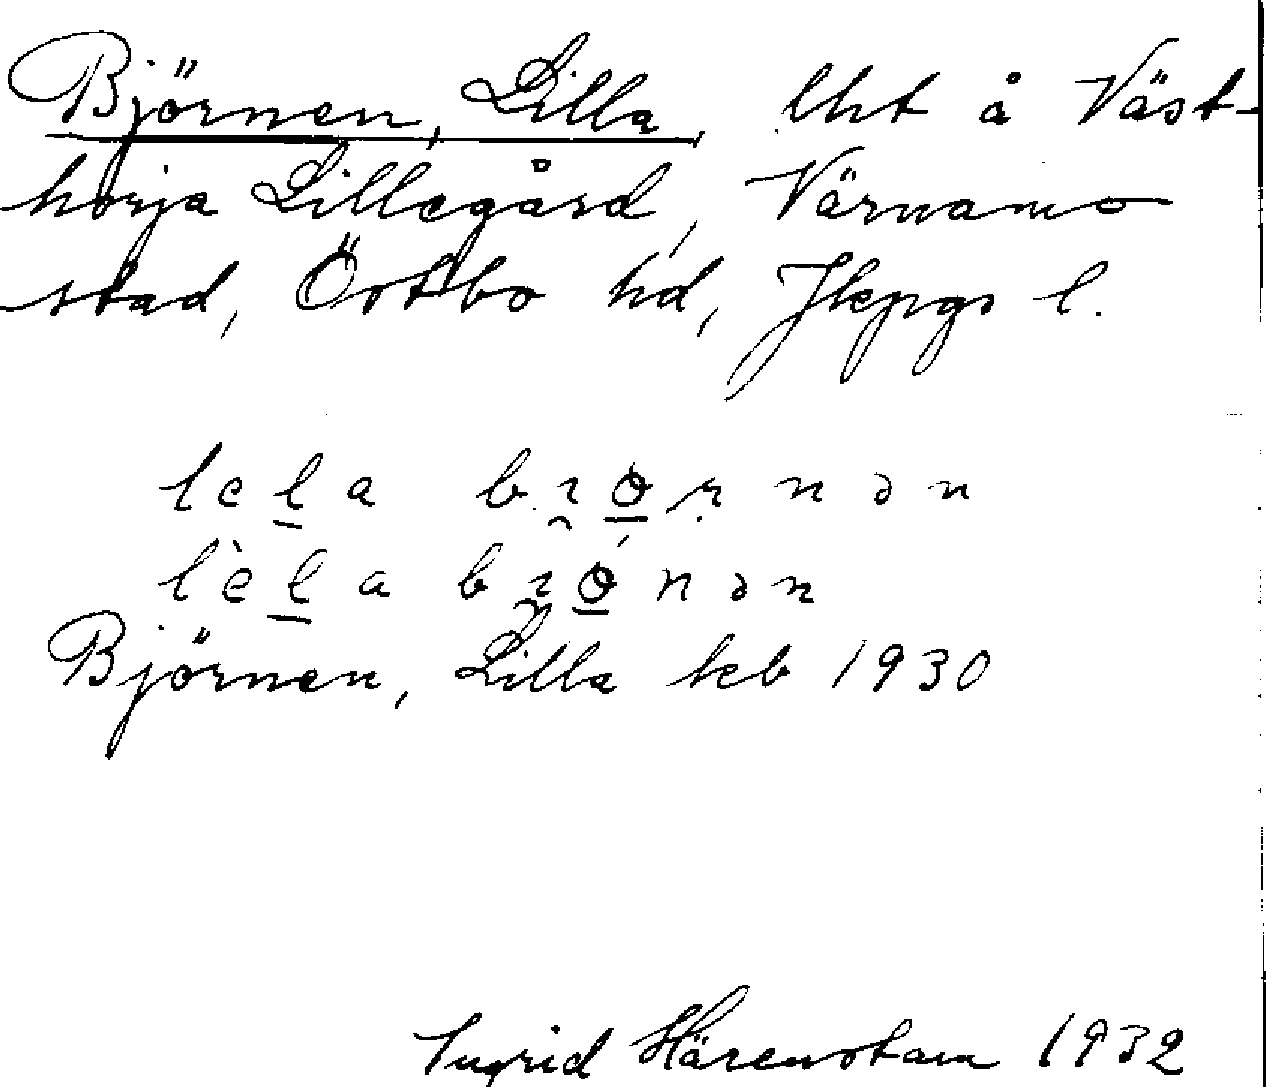 Björnen, Lilla, lht å Väst-
horja Lillegård, Värnamo
stad, Östbo hd, Jkpgs l.
lela bıɵ̯rnən
lèla bıɵ́nən
Björnen, Lilla keb 1930
Ingrid Härenstam 1932